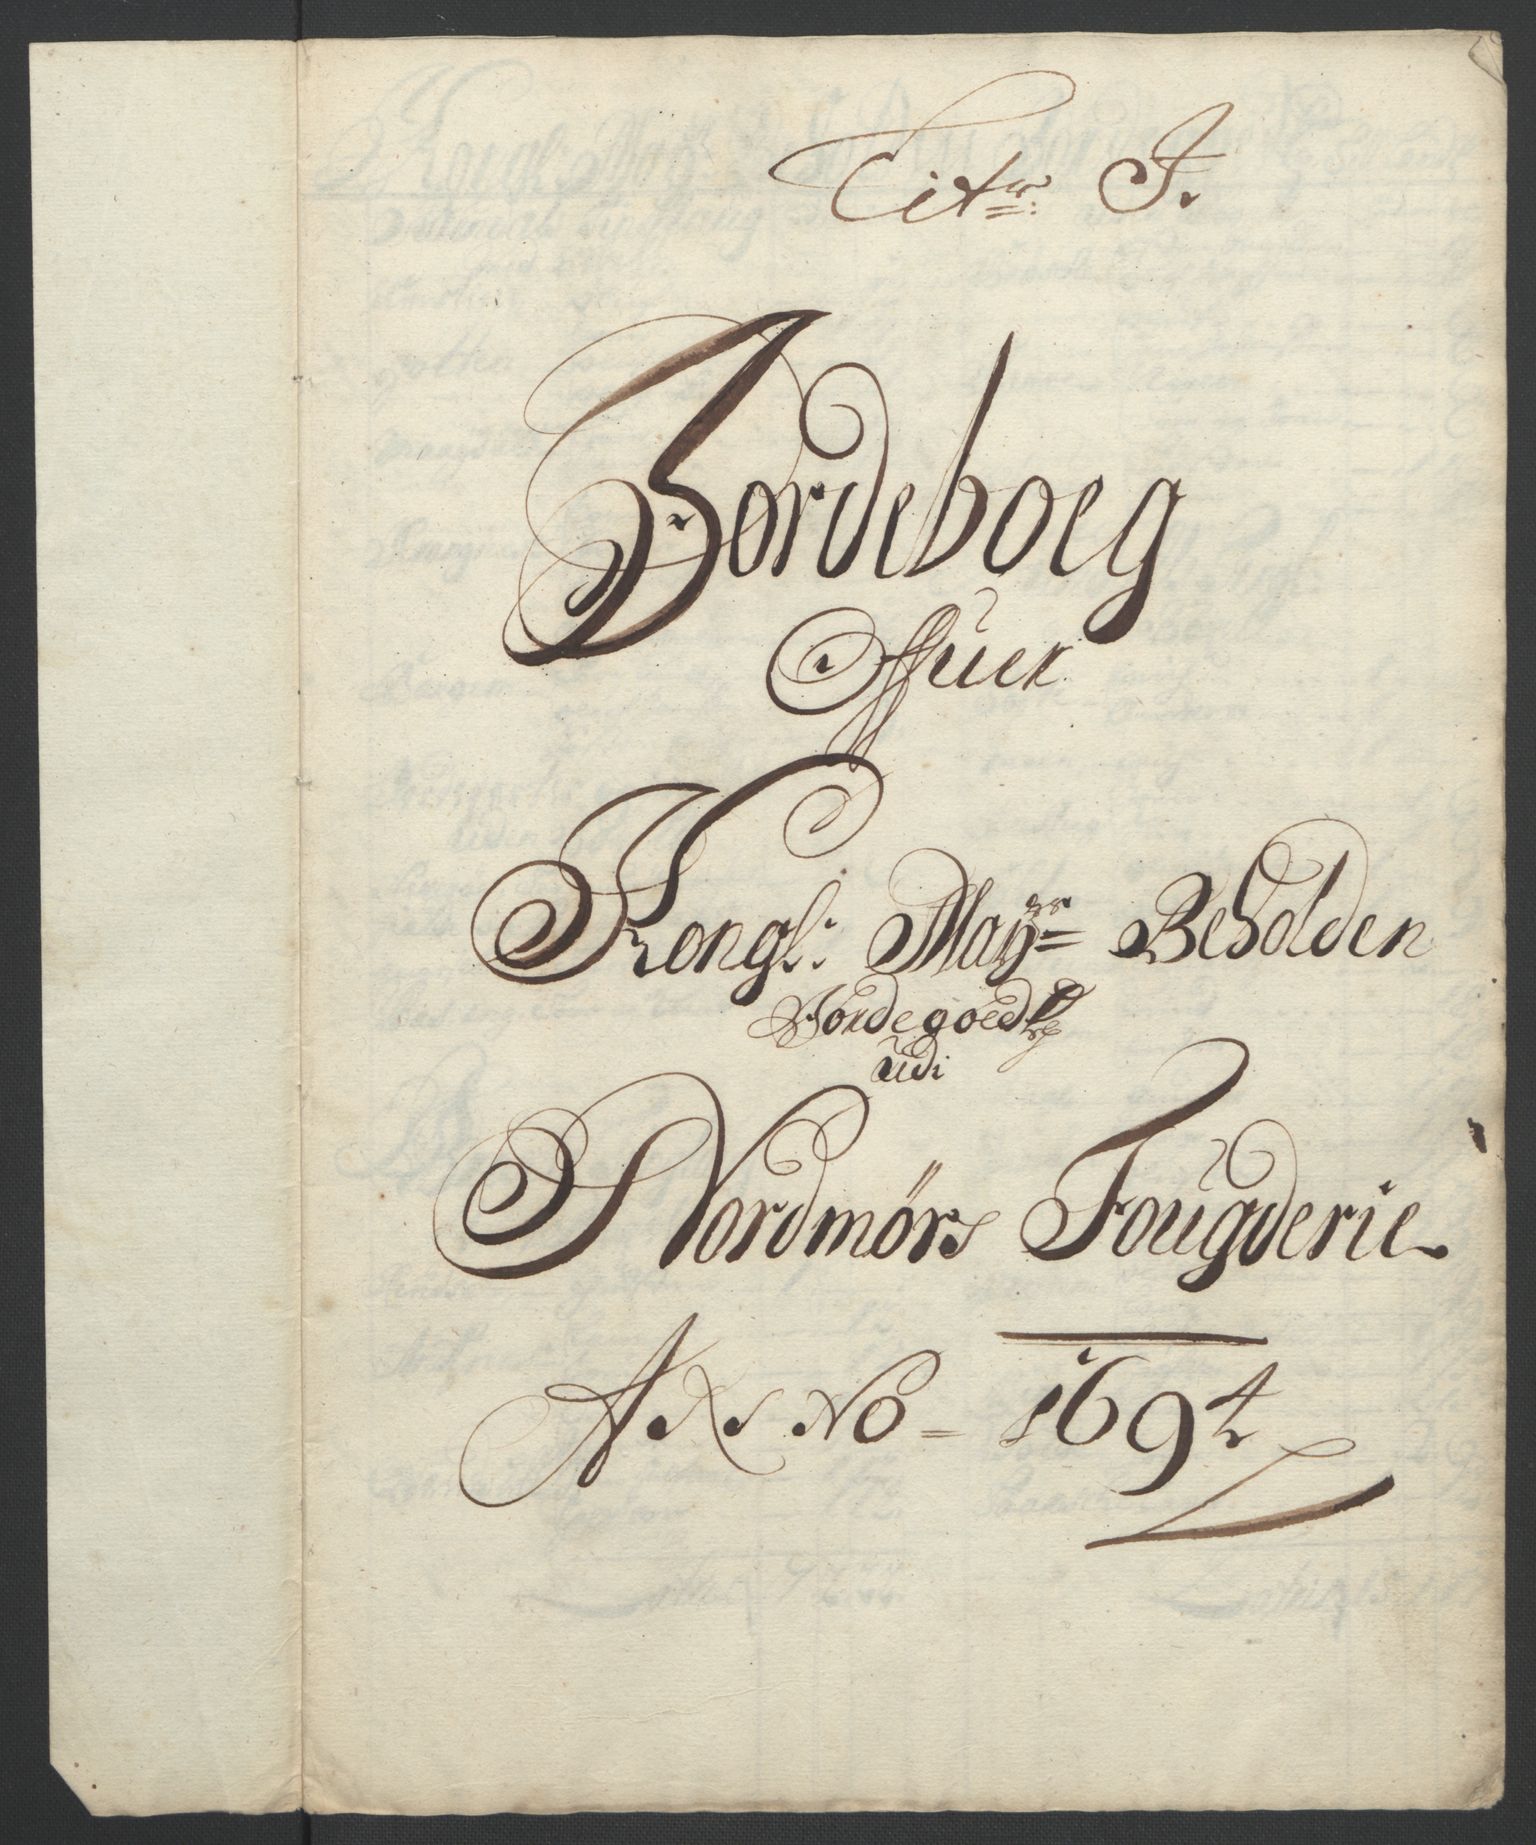 Litr: J.
Jordeboeg
Offuer
Kongl: Maÿtz: Beholden
Jordegoedtz
udi
Nordmørs Fougderie
Anno = 1694